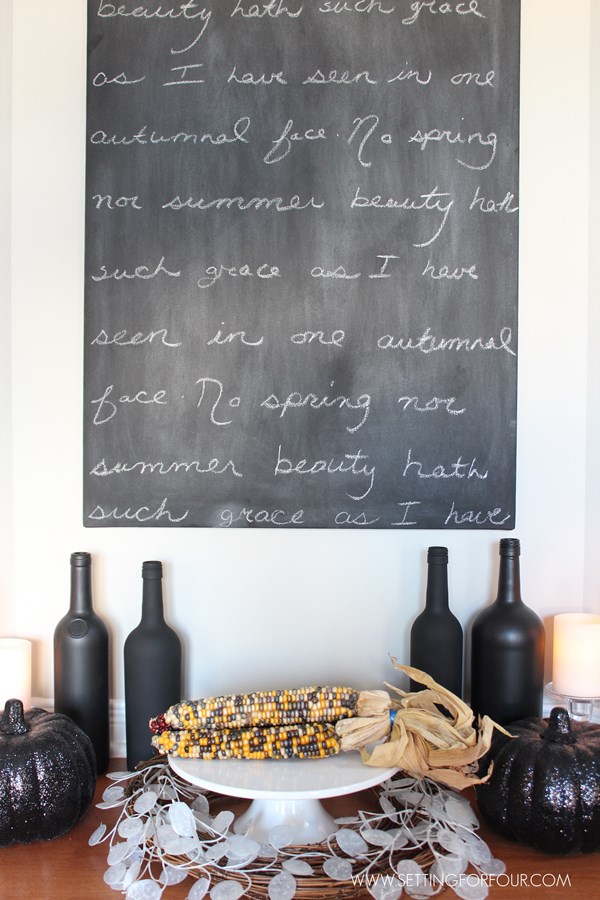 beauty hath such grace
as I have seen in one
autumnal face. No spring
nor summer beauty hath
such grace as I have
seen in one autumnal
face. No spring nor
summer beauty hath
such grace as I have
WWW.SETTINGFORFOUR.COM